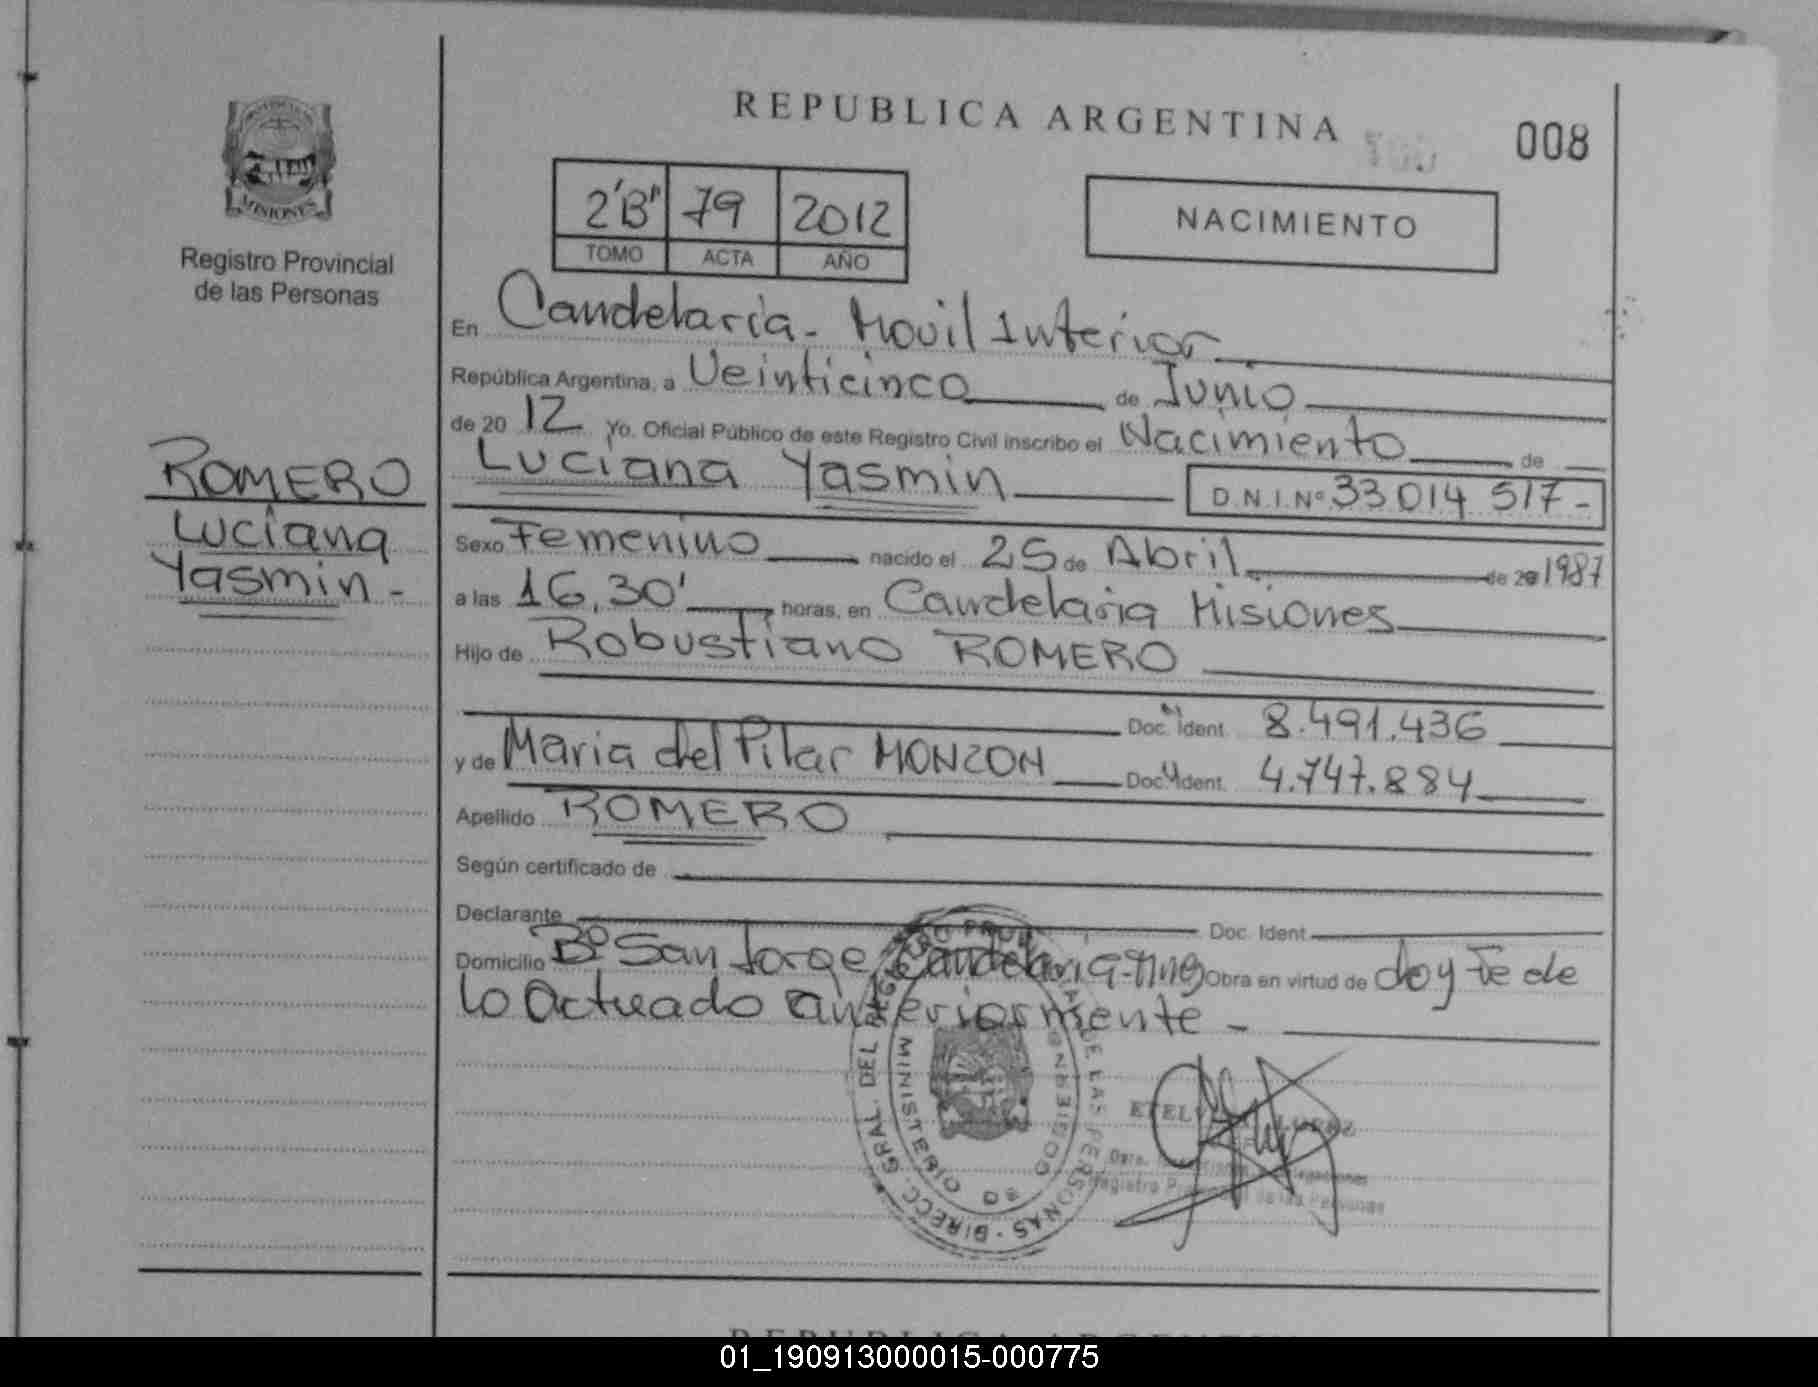 REPUBLICA ARGENTINA
008
MISIONES
Registro Provincial
de las Personas
2"B" 79 2012
TOMO ACTA AÑO
NACIMIENTO
En Candelaria - Movil Interior
República Argentina, a Veinticinco de Junio
de 2012 Yo, Oficial Público de este Registro Civil inscribo el Nacimiento de
Luciana Yasmin D.N.I. Nº 33 014 517 -
ROMERO
Luciana
Yasmin -
Sexo Femenino nacido el 25 de Abril de 1987
a las 16,30' horas, en Candelaria Misiones
Hijo de Robustiano ROMERO
Doc. Ident. 8.491.436
y de Maria del Pilar MONZON Doc. Ident. 4.747.884
Apellido ROMERO
Según certificado de
Declarante Doc. Ident.
Domicilio Bº San Jorge Candelaria - Mnes Obra en virtud de doy Fe de
lo actuado anteriormente -
DIRECC. GRAL. DEL REGISTRO PROVINCIAL DE LAS PERSONAS
MINISTERIO DE GOBIERNO
Registro Provincial de las Personas
REPUBLICA ARGENTINA
01_190913000015-000775